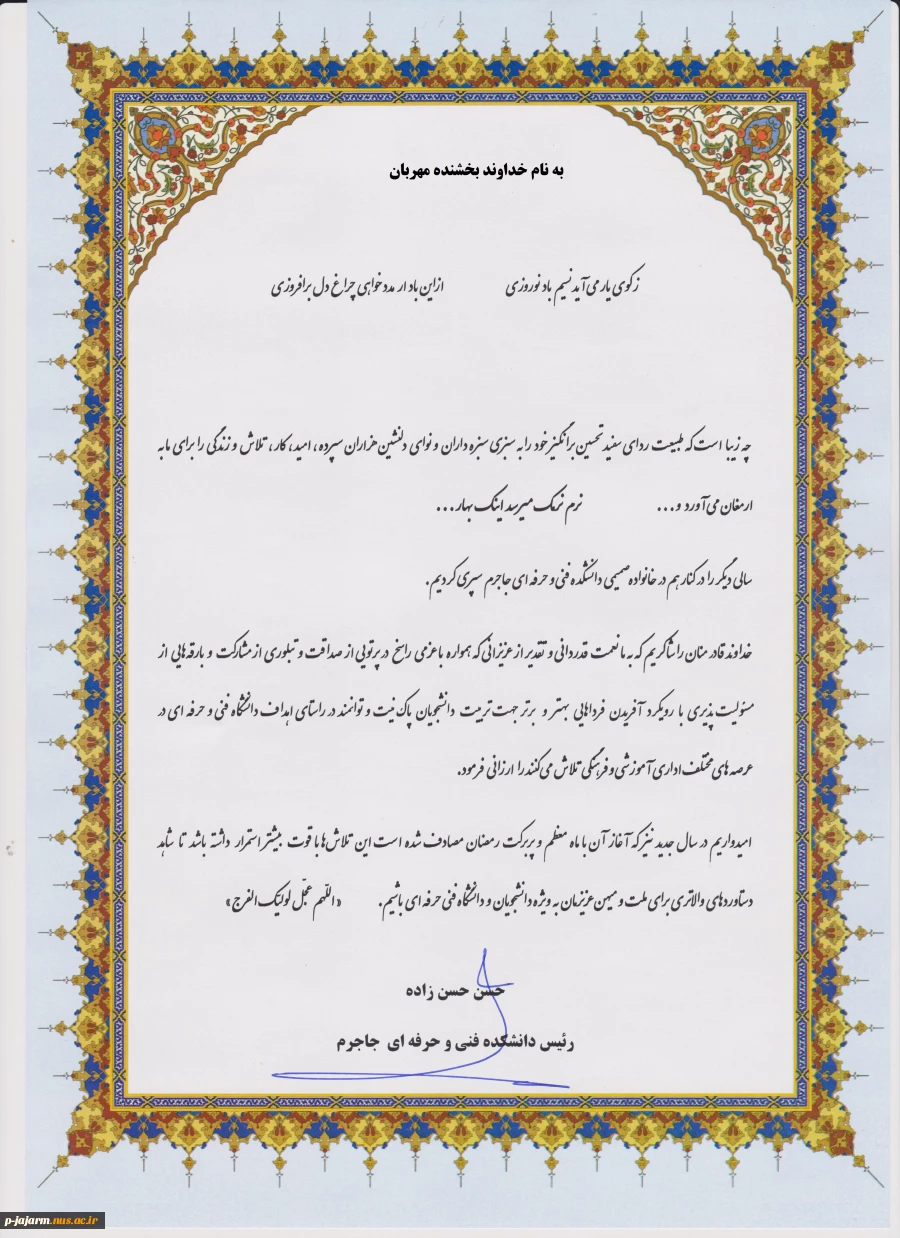 به نام خداوند بخشنده مهربان
ز کوی یار می آید نسیم باد نوروزی ازاین باد ار مدد خواهی چراغ دل برافروزی
چه زیبا است که طبیعت ردای سفید تحسین برانگیز خود را به سبزی سبزه داران و نوای دلنشین هزاران سپرده، امید، کار، تلاش و زندگی را برای ما به
ارمغان می آورد و... نرم نرمک میرسد اینک بهار...
سالی دیگر را در کنار هم در خانواده صمیمی دانشکده فنی و حرفه ای جاجرم سپری کردیم.
خداوند قادر منان را شاکریم که به ما نعمت قدردانی و تقدیر از عزیزانی که همواره با عزمی راسخ در پرتویی از صداقت و تبلوری از مشارکت و بارقه هایی از
مسئولیت پذیری با رویکرد آفریدن فرداهایی بهتر و برتر جهت تربیت دانشجویان پاک نیت و توانمند در راستای اهداف دانشگاه فنی و حرفه ای در
عرصه های مختلف اداری آموزشی و فرهنگی تلاش می کنند را ارزانی فرمود.
امیدواریم در سال جدید نیز که آغاز آن با ماه معظم و پربرکت رمضان مصادف شده است این تلاش ها با قوت بیشتر استمرار داشته باشد تا شاهد
دستاوردهای والاتری برای ملت و میهن عزیزمان به ویژه دانشجویان و دانشگاه فنی حرفه ای باشیم. «اللّهم عجّل لولیّک الفرج»
حسن حسن زاده
رئیس دانشکده فنی و حرفه ای جاجرم
p-jajarm.nus.ac.ir